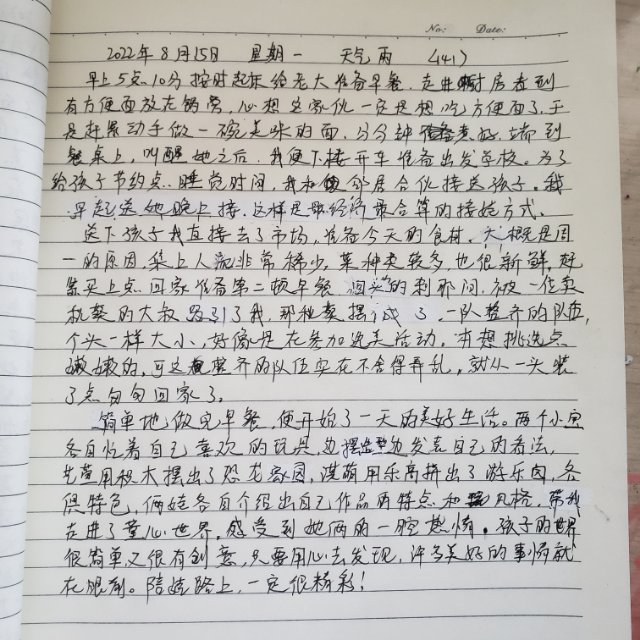 No:        Date:
2022年8月15日  星期一  天气雨  (41)
早上5点10分按时起床给老大准备早餐,走进厨房看到
有方便面放在锅旁,心想这家伙一定是想吃方便面了,于
是赶紧动手做一碗美味的面,分分钟准备煮好,端到
餐桌上,叫醒她之后,我便下楼开车准备出发学校。为了
给孩子节约点睡觉时间,我和邻居合伙接送孩子。我
早起送她晚上接,这样是最经济最合算的接娃方式。
送下孩子我直接去了市场,准备今天的食材,大概是周
一的原因,集上人就非常稀少,菜种类较多,也很新鲜,赶
紧买上点回家准备第二顿早餐,回头的刹那间,被一位卖
秋葵的大叔吸引了我,那秋葵摆成了一队整齐的队伍,
个头一样大小,好像是在参加选美活动,本想挑选点
嫩嫩的,可这整齐的队伍实在不舍得弄乱,就从一头装
了点匆匆回家了。
简单地做完早餐,便开始了一天的美好生活。两个小宝
各自忙着自己喜欢的玩具,边摆造型边发表自己的看法,
用积木摆出了恐龙家园,淇萌用乐高拼出了游乐园,各
俱特色,俩娃各自介绍出自己作品的特点和风格,带我
走进了童心世界,感受到她俩的一腔热情。孩子的世界
很简单又很有创意,只要用心去发现,许多美好的事情就
在眼前。陪娃路上,一定很精彩!